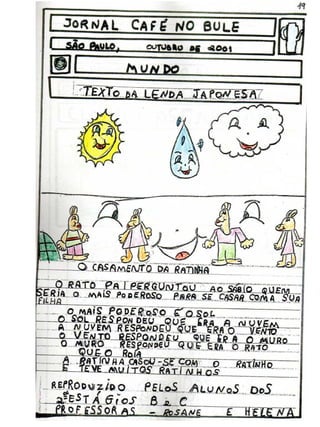 19
JORNAL CAFÉ NO BULE
SÃO PAULO, OUTUBRO DE 2001
MUNDO
TEXTO DA LENDA JAPONESA
O CASAMENTO DA RATINHA
O RATO PAI PERGUNTOU AO SÁBIO QUEM
SERIA O MAIS PODEROSO PARA SE CASAR COM A SUA
FILHA
O MAIS PODEROSO É O SOL
O SOL RESPONDEU QUE ERA A NUVEM
A NUVEM RESPONDEU QUE ERA O VENTO
O VENTO RESPONDEU QUE ERA O MURO
O MURO RESPONDEU QUE ERA O RATO
QUE O ROIA
A RATINHA CASOU-SE COM O RATINHO
E TEVE MUITOS RATINHOS
REPRODUZIDO PELOS ALUNOS DOS
2ºs ESTÁGIOS B e C
PROFESSORAS - ROSANE E HELENA